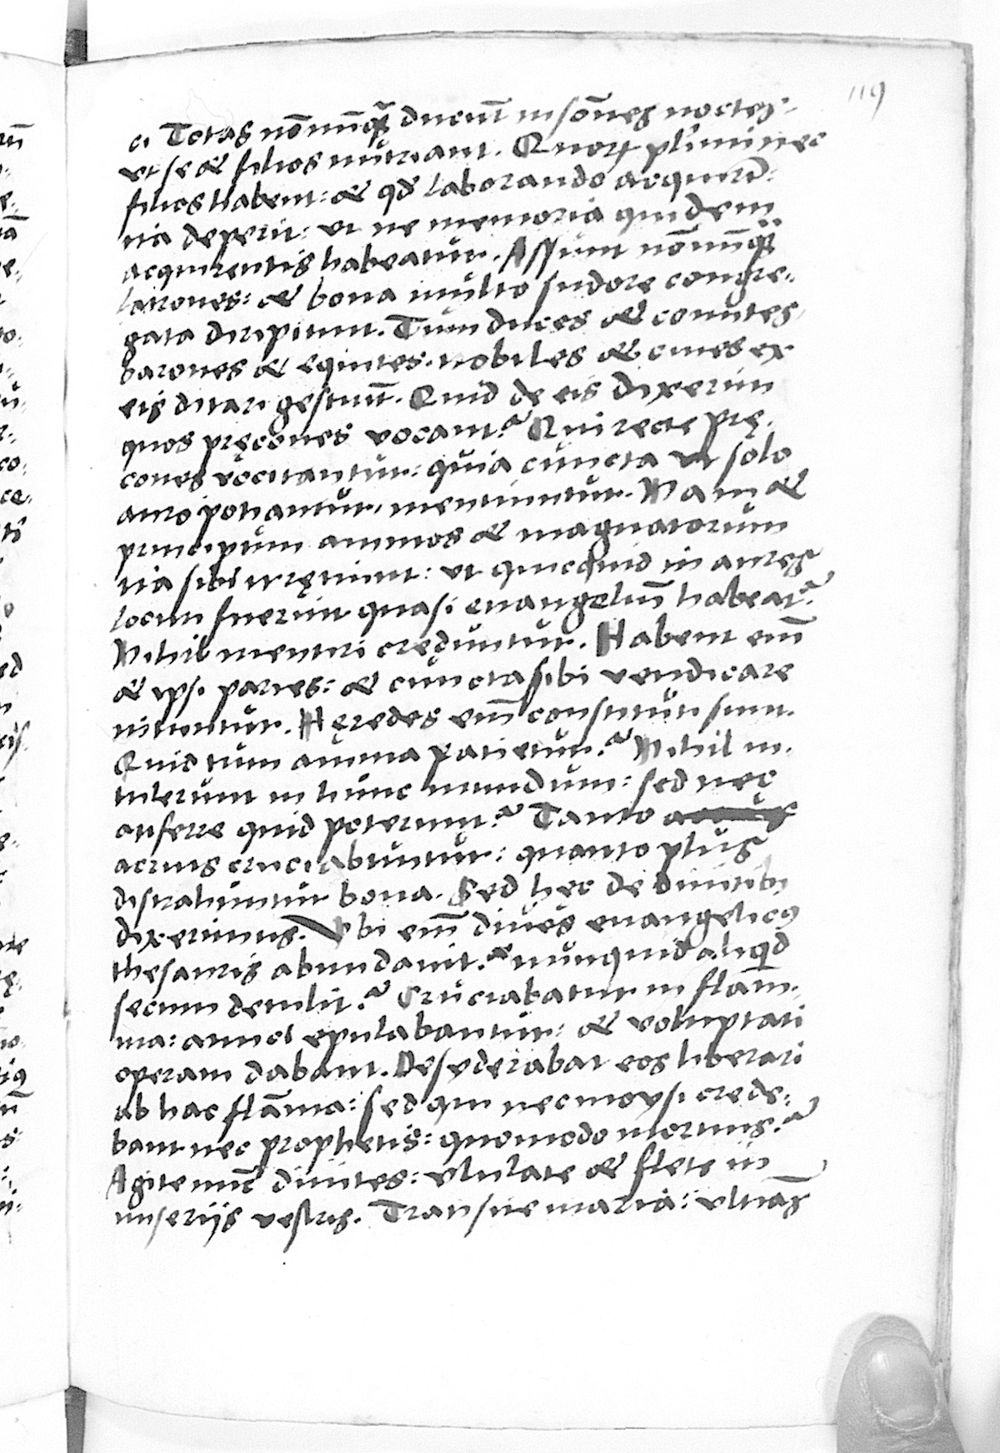 119
ci Totas nōnūq̃ ducūt insōnes noctes.
ut se & filios nutriant. Quorꝝ plimi nec
filios habent: & qd̃ laborando acquirūt:
ita deperit: ut ne memoria quidem
acquirentis habeatur. Assunt nōnūq̃
latrones: & bona multo sudore congre-
gata diripiunt. Tum duces & comites
barones & equites. nobiles & ciues ex
eis ditari gestiūt. Quid de eis dixerim
quos pręcones vocant? Qui recte prę-
cones vocitantur: quia cuncta ut solo
auro potiantur, mentiuntur. Nam &
principum animos & magnatorum
ita sibi irretiunt: ut quicquid in aures
locuti fuerint quasi euangeliū habeat̃?
Nihil mentiri creduntur. Habent em̄
& ipsi partes: & cuncta sibi vendicare
nituntur. Hęredes em̄ constituti sunt.
Quid tum anima patietur? Nihil in-
tulerunt in hunc mundum: sed nec
auferre quid poterunt? Tanto
acrius cruciabuntur: quanto plus
distrahuntur bona. Sed hec de diuitibꝫ
dixerimus. Vbi em̄ diues euangelicꝰ
thesauris abundauit? nunquid aliqd
secum detulit? Cruciabatur in flam-
ma: amici epulabantur: & voluptati
operam dabant. Desyderabat eos liberari
ab hac flāma: sed qui nec moysi crede-
bant nec prophetis: quomodo mortuis?
Agite nūc diuites: ululate & flete in
miseriis vestris. Transite maria: ultīas